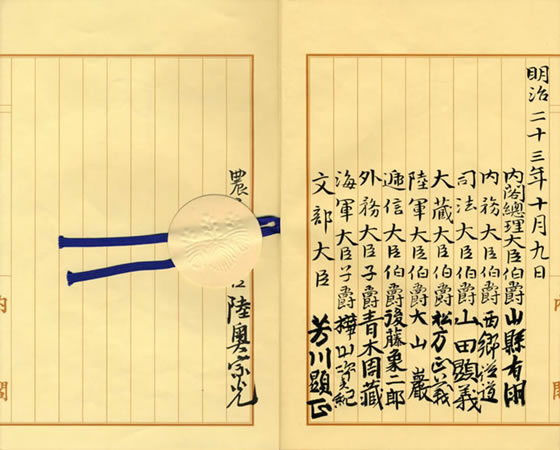 明治二十三年十月九日
内閣總理大臣伯爵山縣有朋
内務大臣伯爵西郷從道
司法大臣伯爵山田顯義
大藏大臣伯爵松方正義
陸軍大臣伯爵大山巖
遞信大臣伯爵後藤象二郎
外務大臣子爵青木周藏
海軍大臣子爵樺山資紀
文部大臣 芳川顯正
農 陸奥宗光
内閣